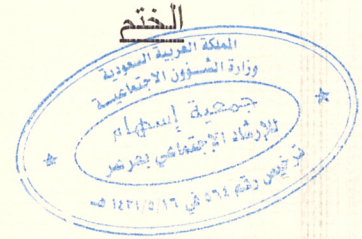 الختم
المملكة العربية السعودية
وزارة الشؤون الاجتماعية
جمعية إسهام
للإرشاد الاجتماعي بعرعر
ترخيص رقم ٥٦٤ في ١٤٣١/٥/١٦ هـ